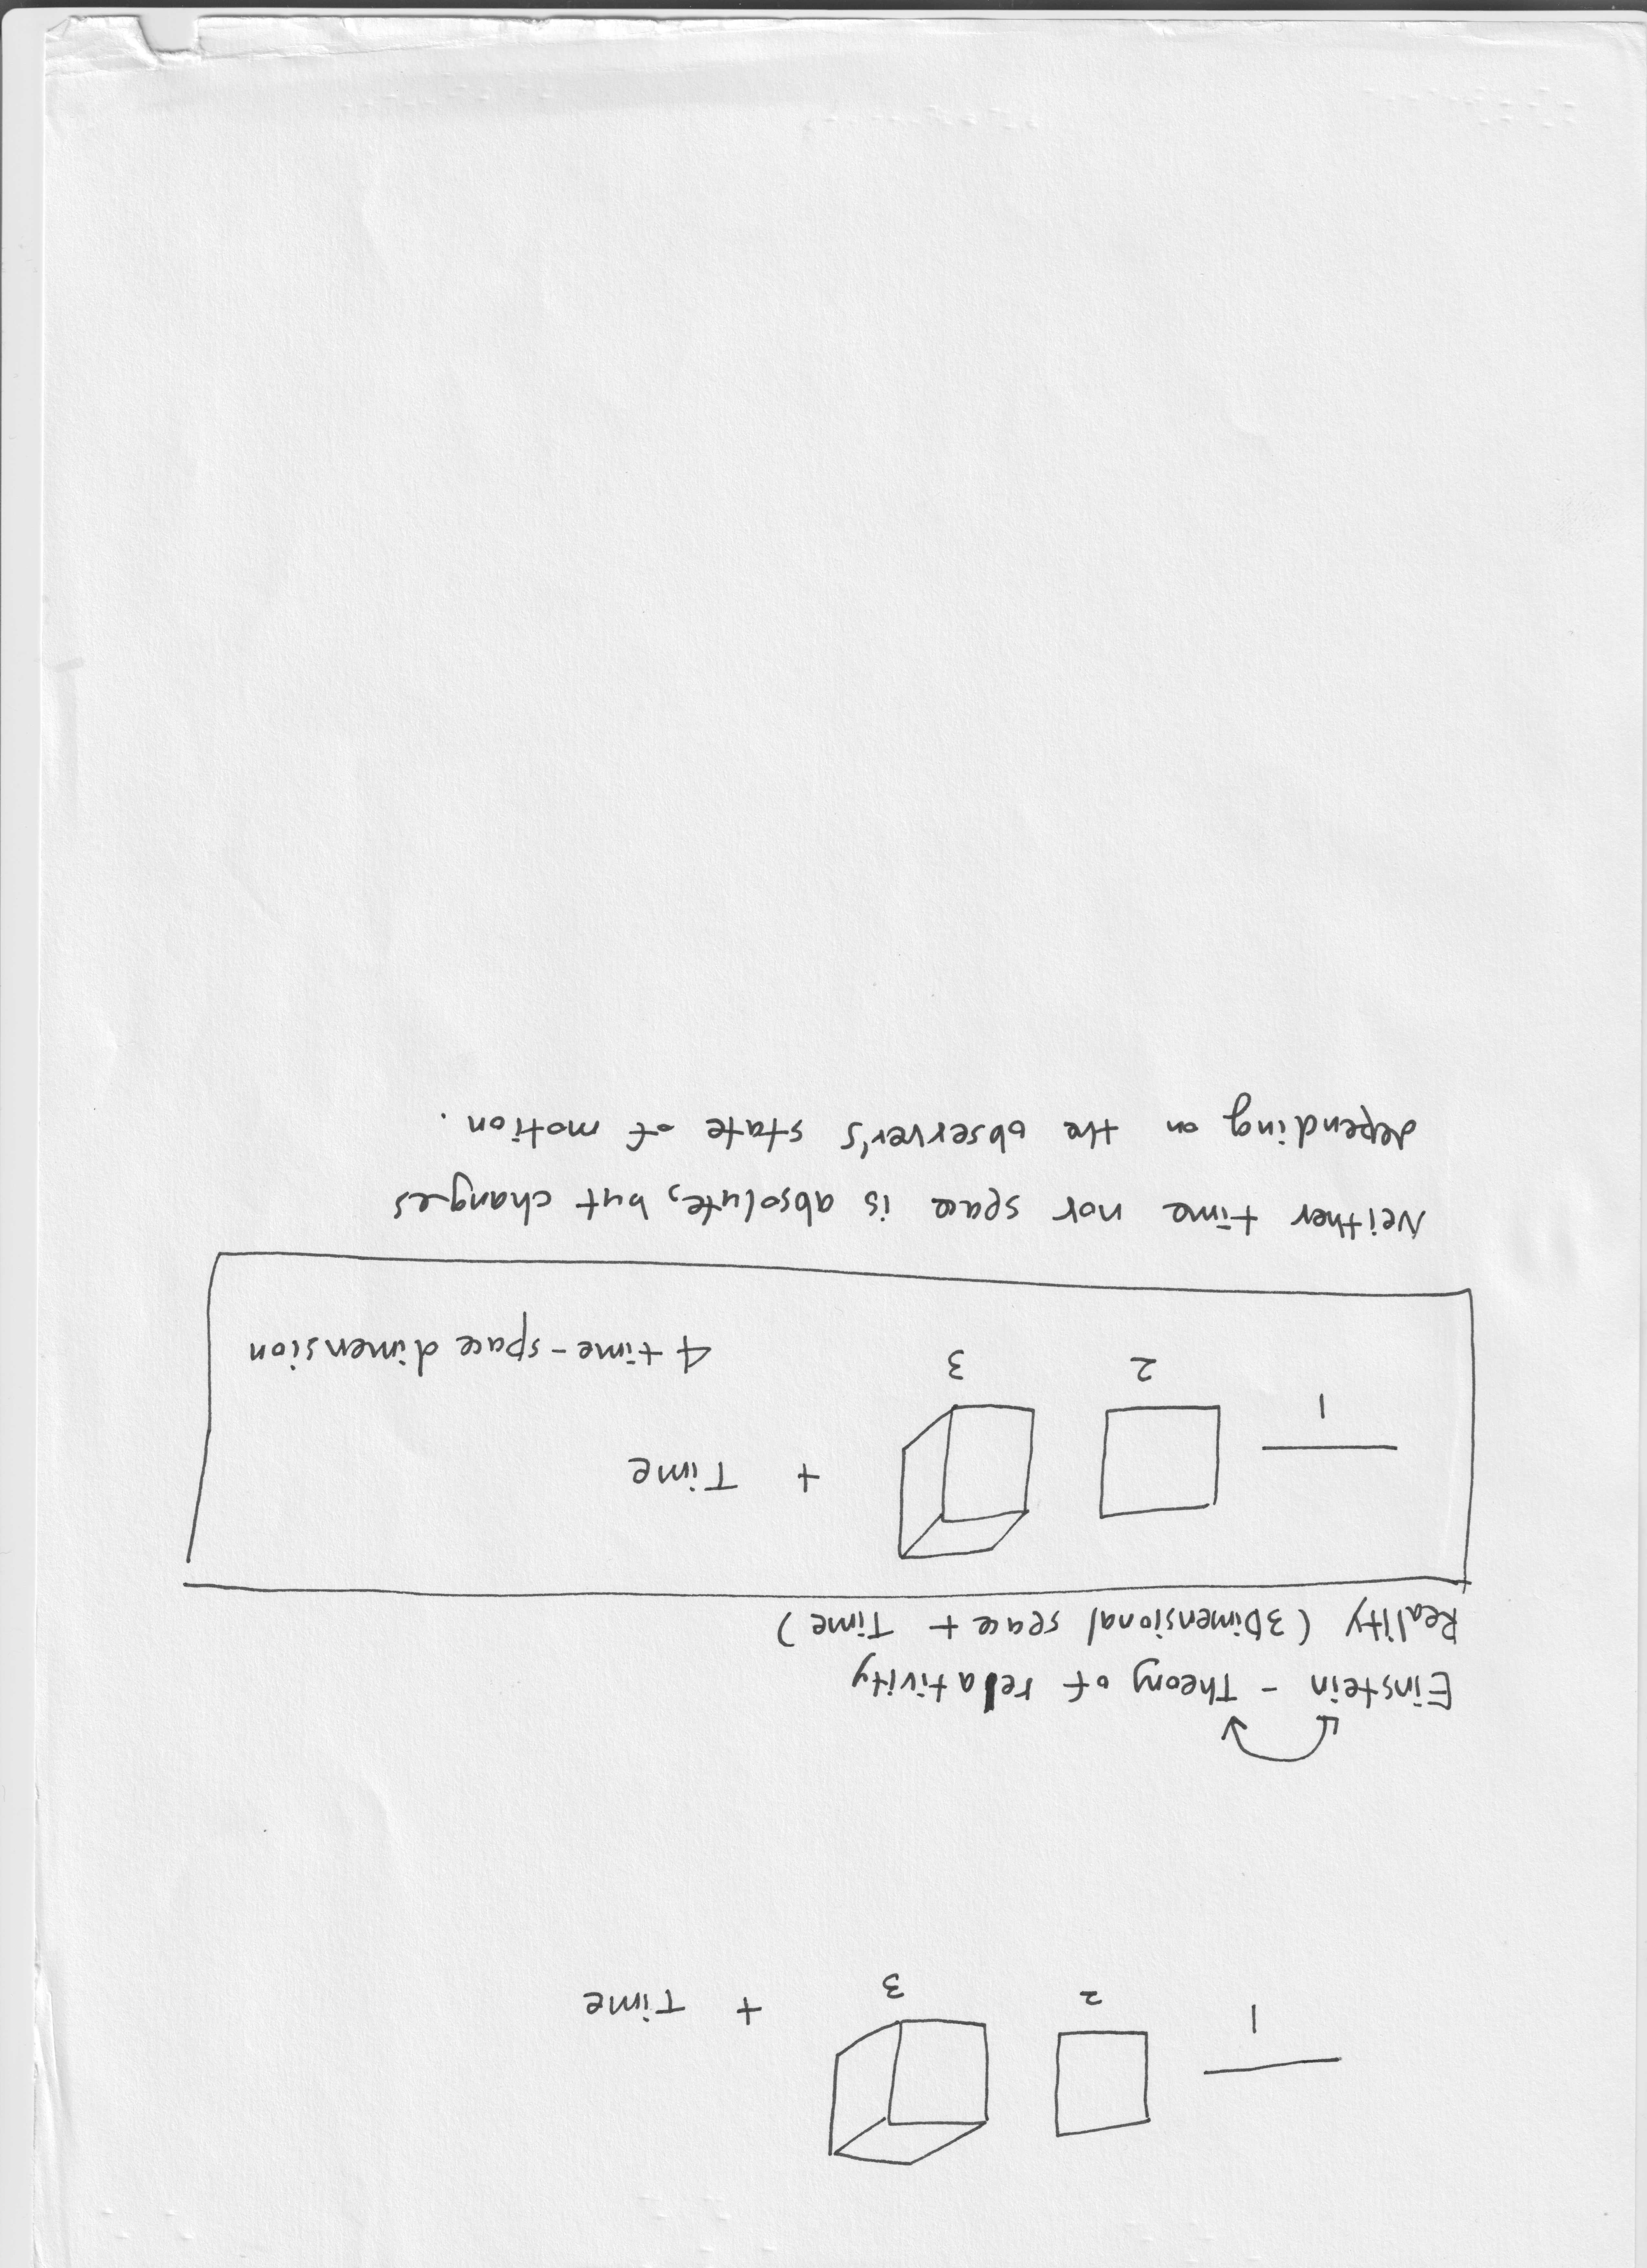 1 2 3 + Time
Einstein - Theory of relativity
Reality (3Dimensional space + Time)
1 2 3 + Time
4 time-space dimension
Neither time nor space is absolute, but changes
depending on the observer's state of motion.